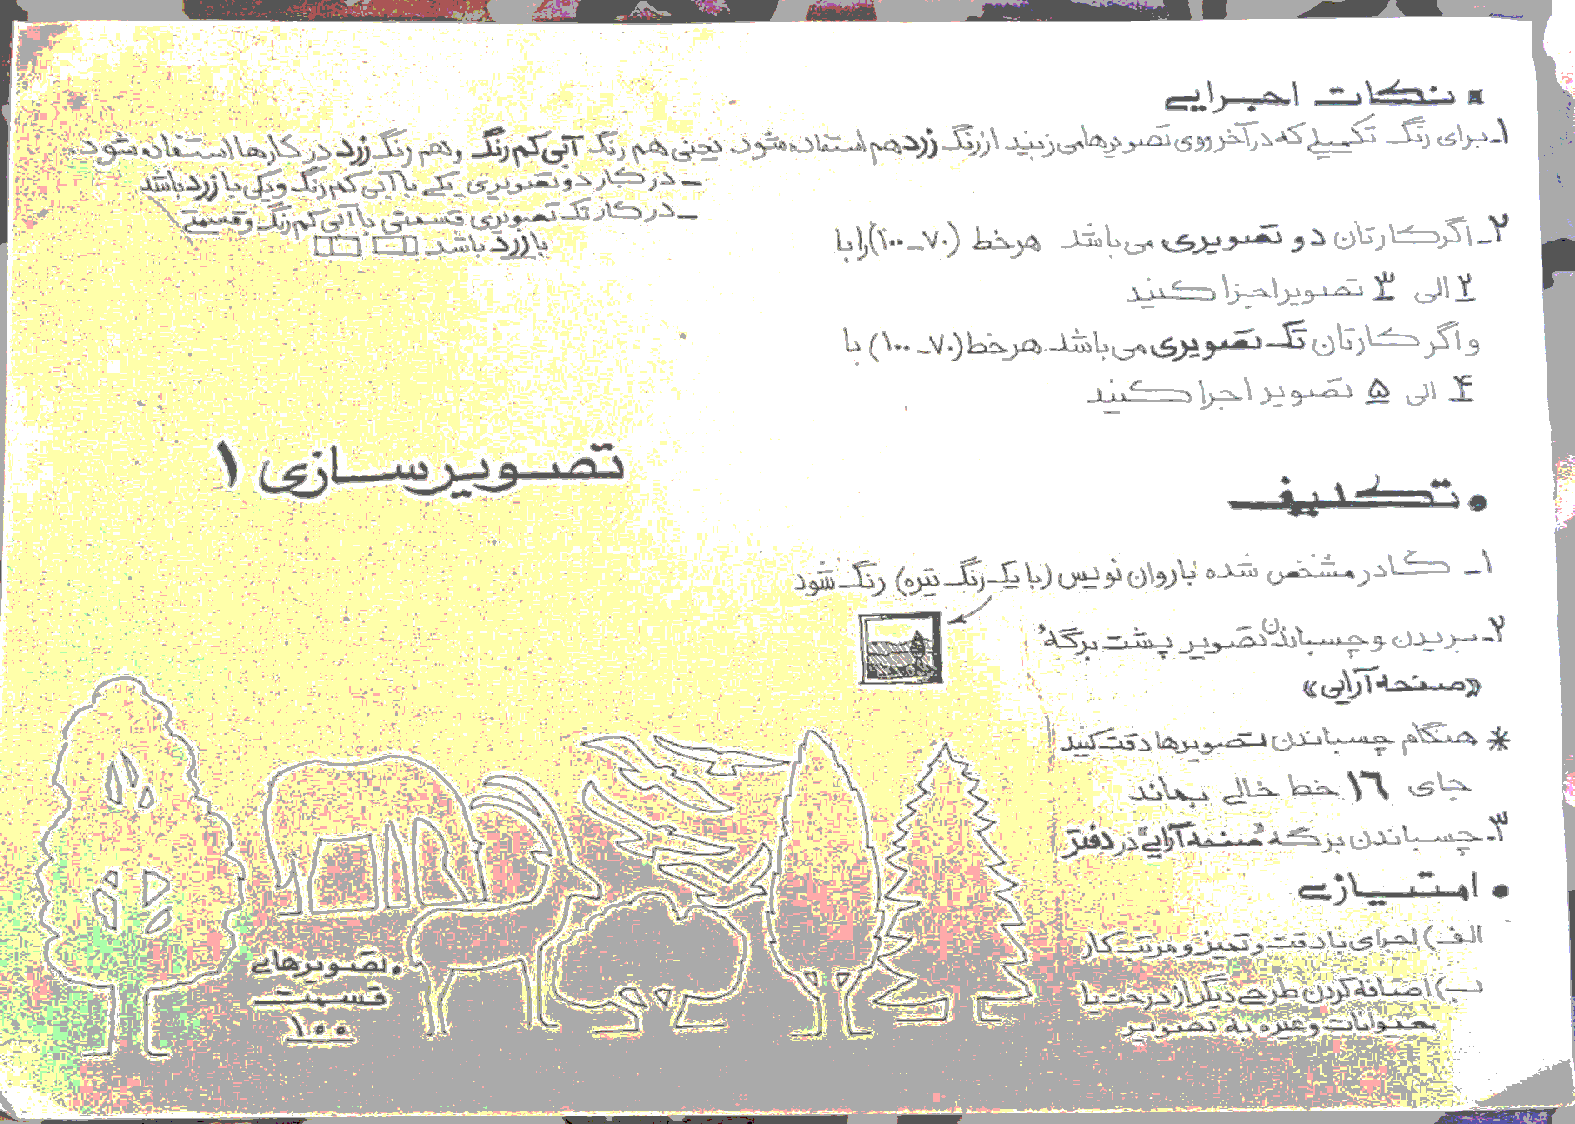 ▪ نکات اجرایی
۱ـ برای رنگ تکمیلی که در آخر روی تصویرها می زنید از رنگ زرد هم استفاده شود. یعنی هم رنگ آبی کم رنگ و هم رنگ زرد در کارها استفاده شود.
ـ در کار دو تصویری یکی با آبی کم رنگ و یکی با زرد باشد
ـ در کار تک تصویری قسمتی با آبی کم رنگ و قسمتی
با زرد باشد
۲ـ اگر کارتان دو تصویری می باشد هر خط (۷۰ـ۱۰۰) را با
۲ الی ۳ تصویر اجرا کنید
و اگر کارتان تک تصویری می باشد هر خط (۷۰ـ۱۰۰) با
۴ الی ۵ تصویر اجرا کنید
تصویرسازی ۱
• تکلیف
۱ـ کادر مشخص شده با روان نویس (با یک رنگ تیره) رنگ شود
۲ـ بریدن و چسباندن تصویر پشت برگهٔ
«صفحه آرایی»
* هنگام چسباندن تصویرها دقت کنید
جای ۱۶ خط خالی بماند
۳ـ چسباندن برگه "صفحه آرایی" در دفتر
• امتیازی
الف) اجرای با دقت و تمیز و مرتب کار
ب) اضافه کردن طرحی دیگر از درخت یا
حیوانات و غیره به تصویر
• تصویرهای
قسمت
۱۰۰